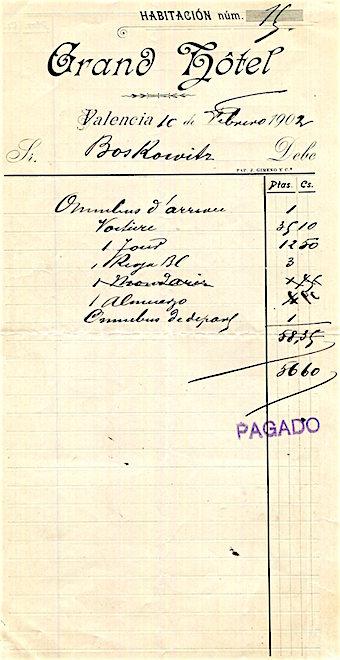 HABITACIÓN núm. 15.
Grand Hôtel
Valencia 10 de Febrero 1902
Sr. Boskowitz Debe
PAT. J. GIMENO Y Cª
Ptas. Cs.
Omnibus d'arrivee 1
Voiture 35 10
1 Jour 12 50
1 Rioja Bl 3
1 Mondariz
1 Almuerzo
Omnibus de depart 1
58,35
56 60
PAGADO